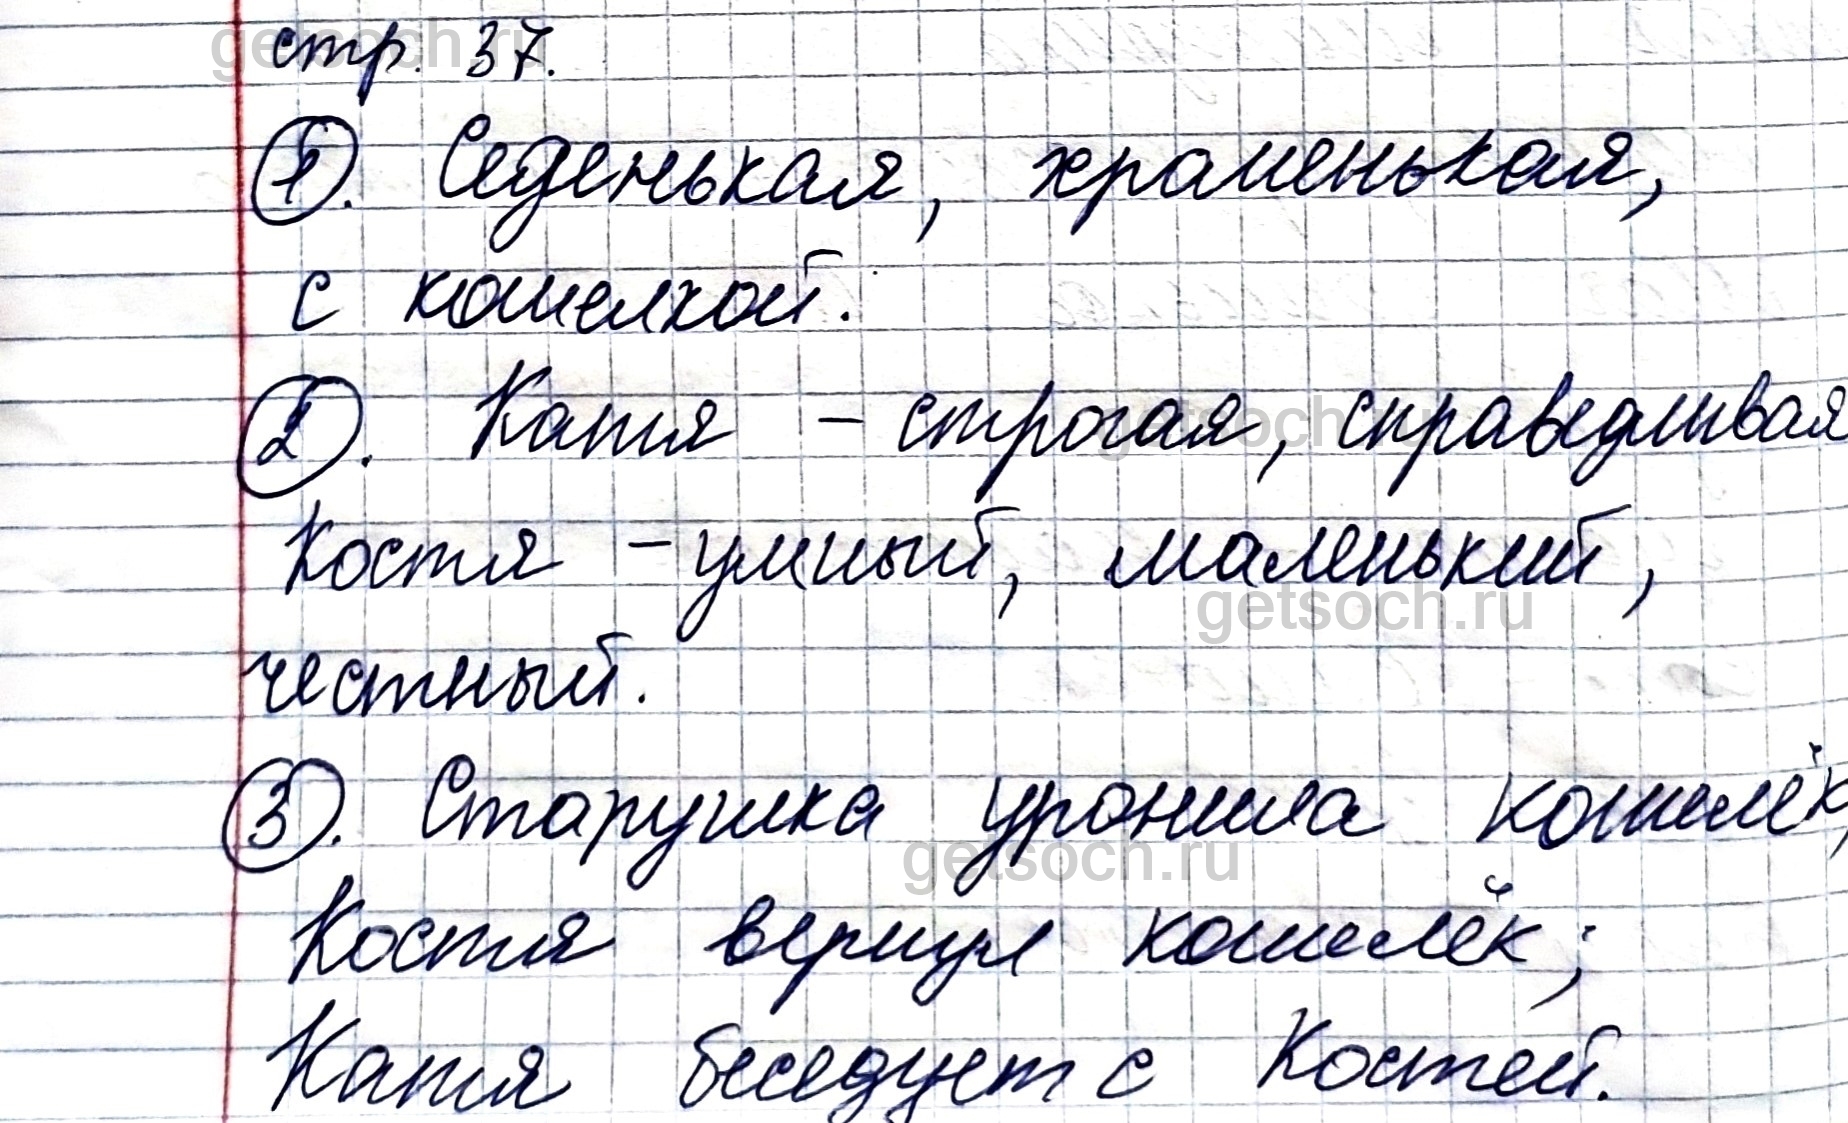 стр. 37.
1. Седенькая, храменькая,
с кошелкой.
2. Катя – строгая, справедливая
Костя – умный, маленький,
честный.
3. Старушка уронила кошелёк,
Костя вернул кошелёк;
Катя беседует с Костей.
getsoch.ru
getsoch.ru
getsoch.ru
getsoch.ru